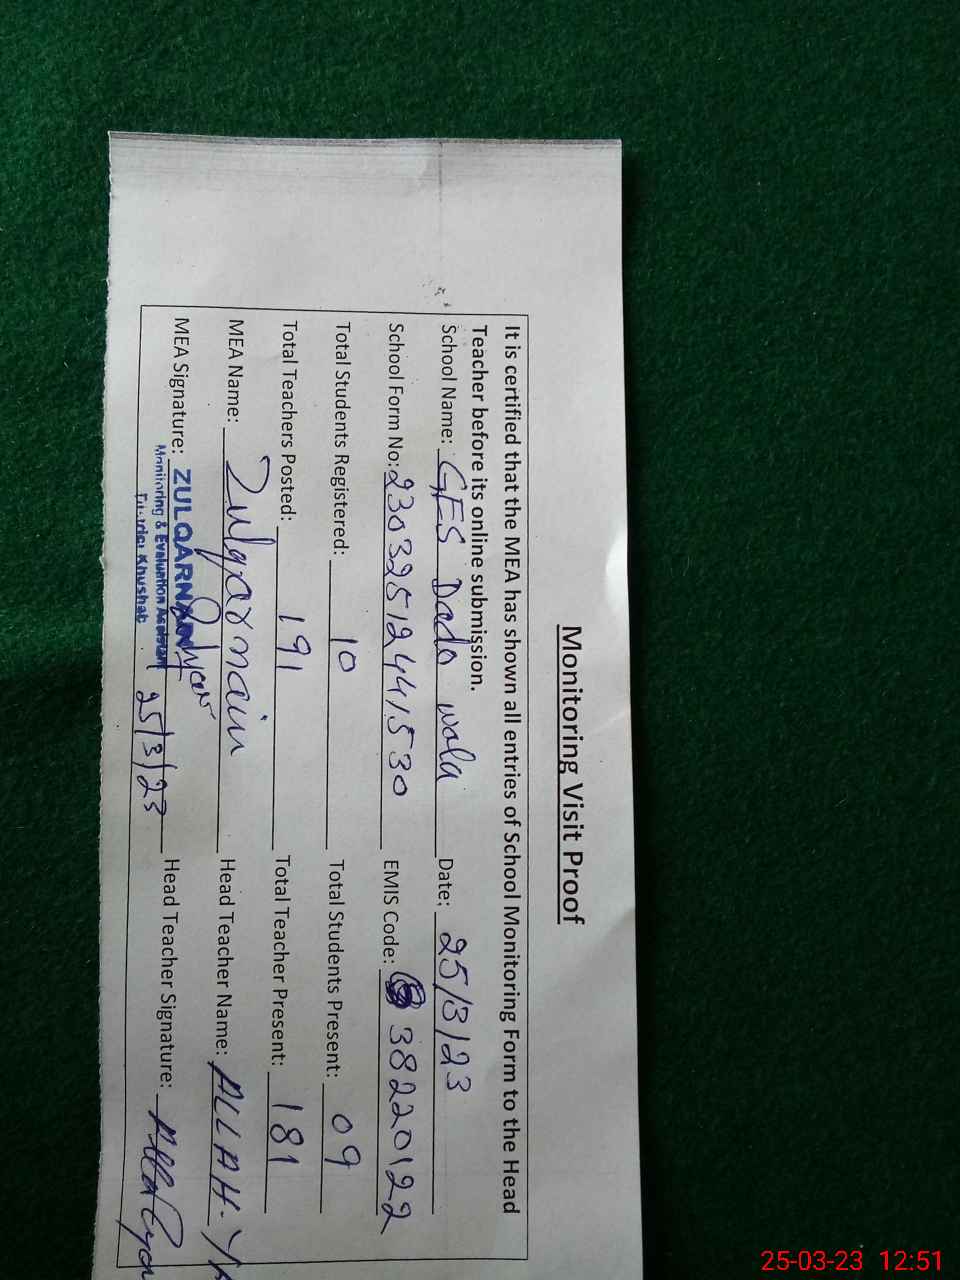 Monitoring Visit Proof
It is certified that the MEA has shown all entries of School Monitoring Form to the Head
Teacher before its online submission.
School Name: GES Dada wala Date: 25/3/23
School Form No: 23032512441530 EMIS Code: 38220122
Total Students Registered: 10 Total Students Present: 09
Total Teachers Posted: 191 Total Teacher Present: 181
MEA Name: Zulqarnain Head Teacher Name: ALLAH.
MEA Signature: ZULQARNAIN 25/3/23 Head Teacher Signature:
Monitoring & Evaluation Assistant
District Khushab
25-03-23 12:51